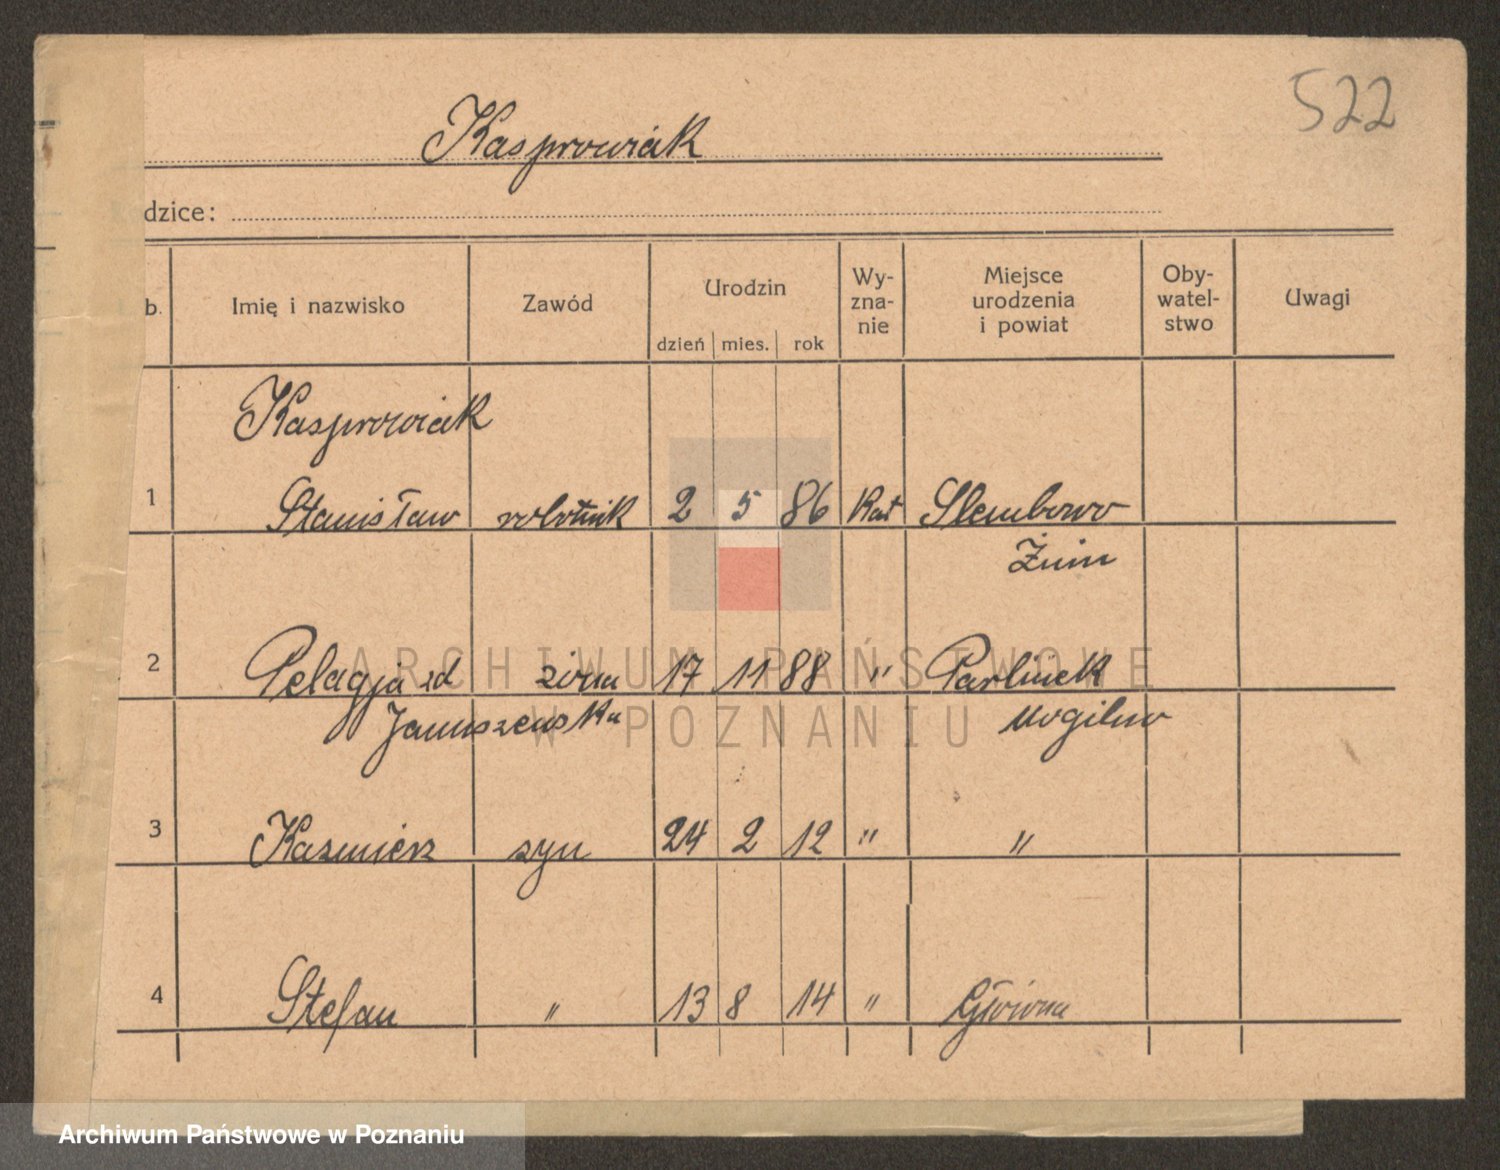 522
Kasprowiak
dzice:
b.
Imię i nazwisko
Zawód
Urodzin
dzień mies. rok
Wy-
zna-
nie
Miejsce
urodzenia
i powiat
Oby-
watel-
stwo
Uwagi
Kasprowiak
1 Stanisław robotnik 2 5 86 Kat Slembowo
Żnin
2 Pelagja zd żona 17 11 88 " Parlinek
Januszewska Mogilno
3 Kazmierz syn 24 2 12 " "
4 Stefan " 13 8 14 " Główna
ARCHIWUM PAŃSTWOWE
W POZNANIU
Archiwum Państwowe w Poznaniu